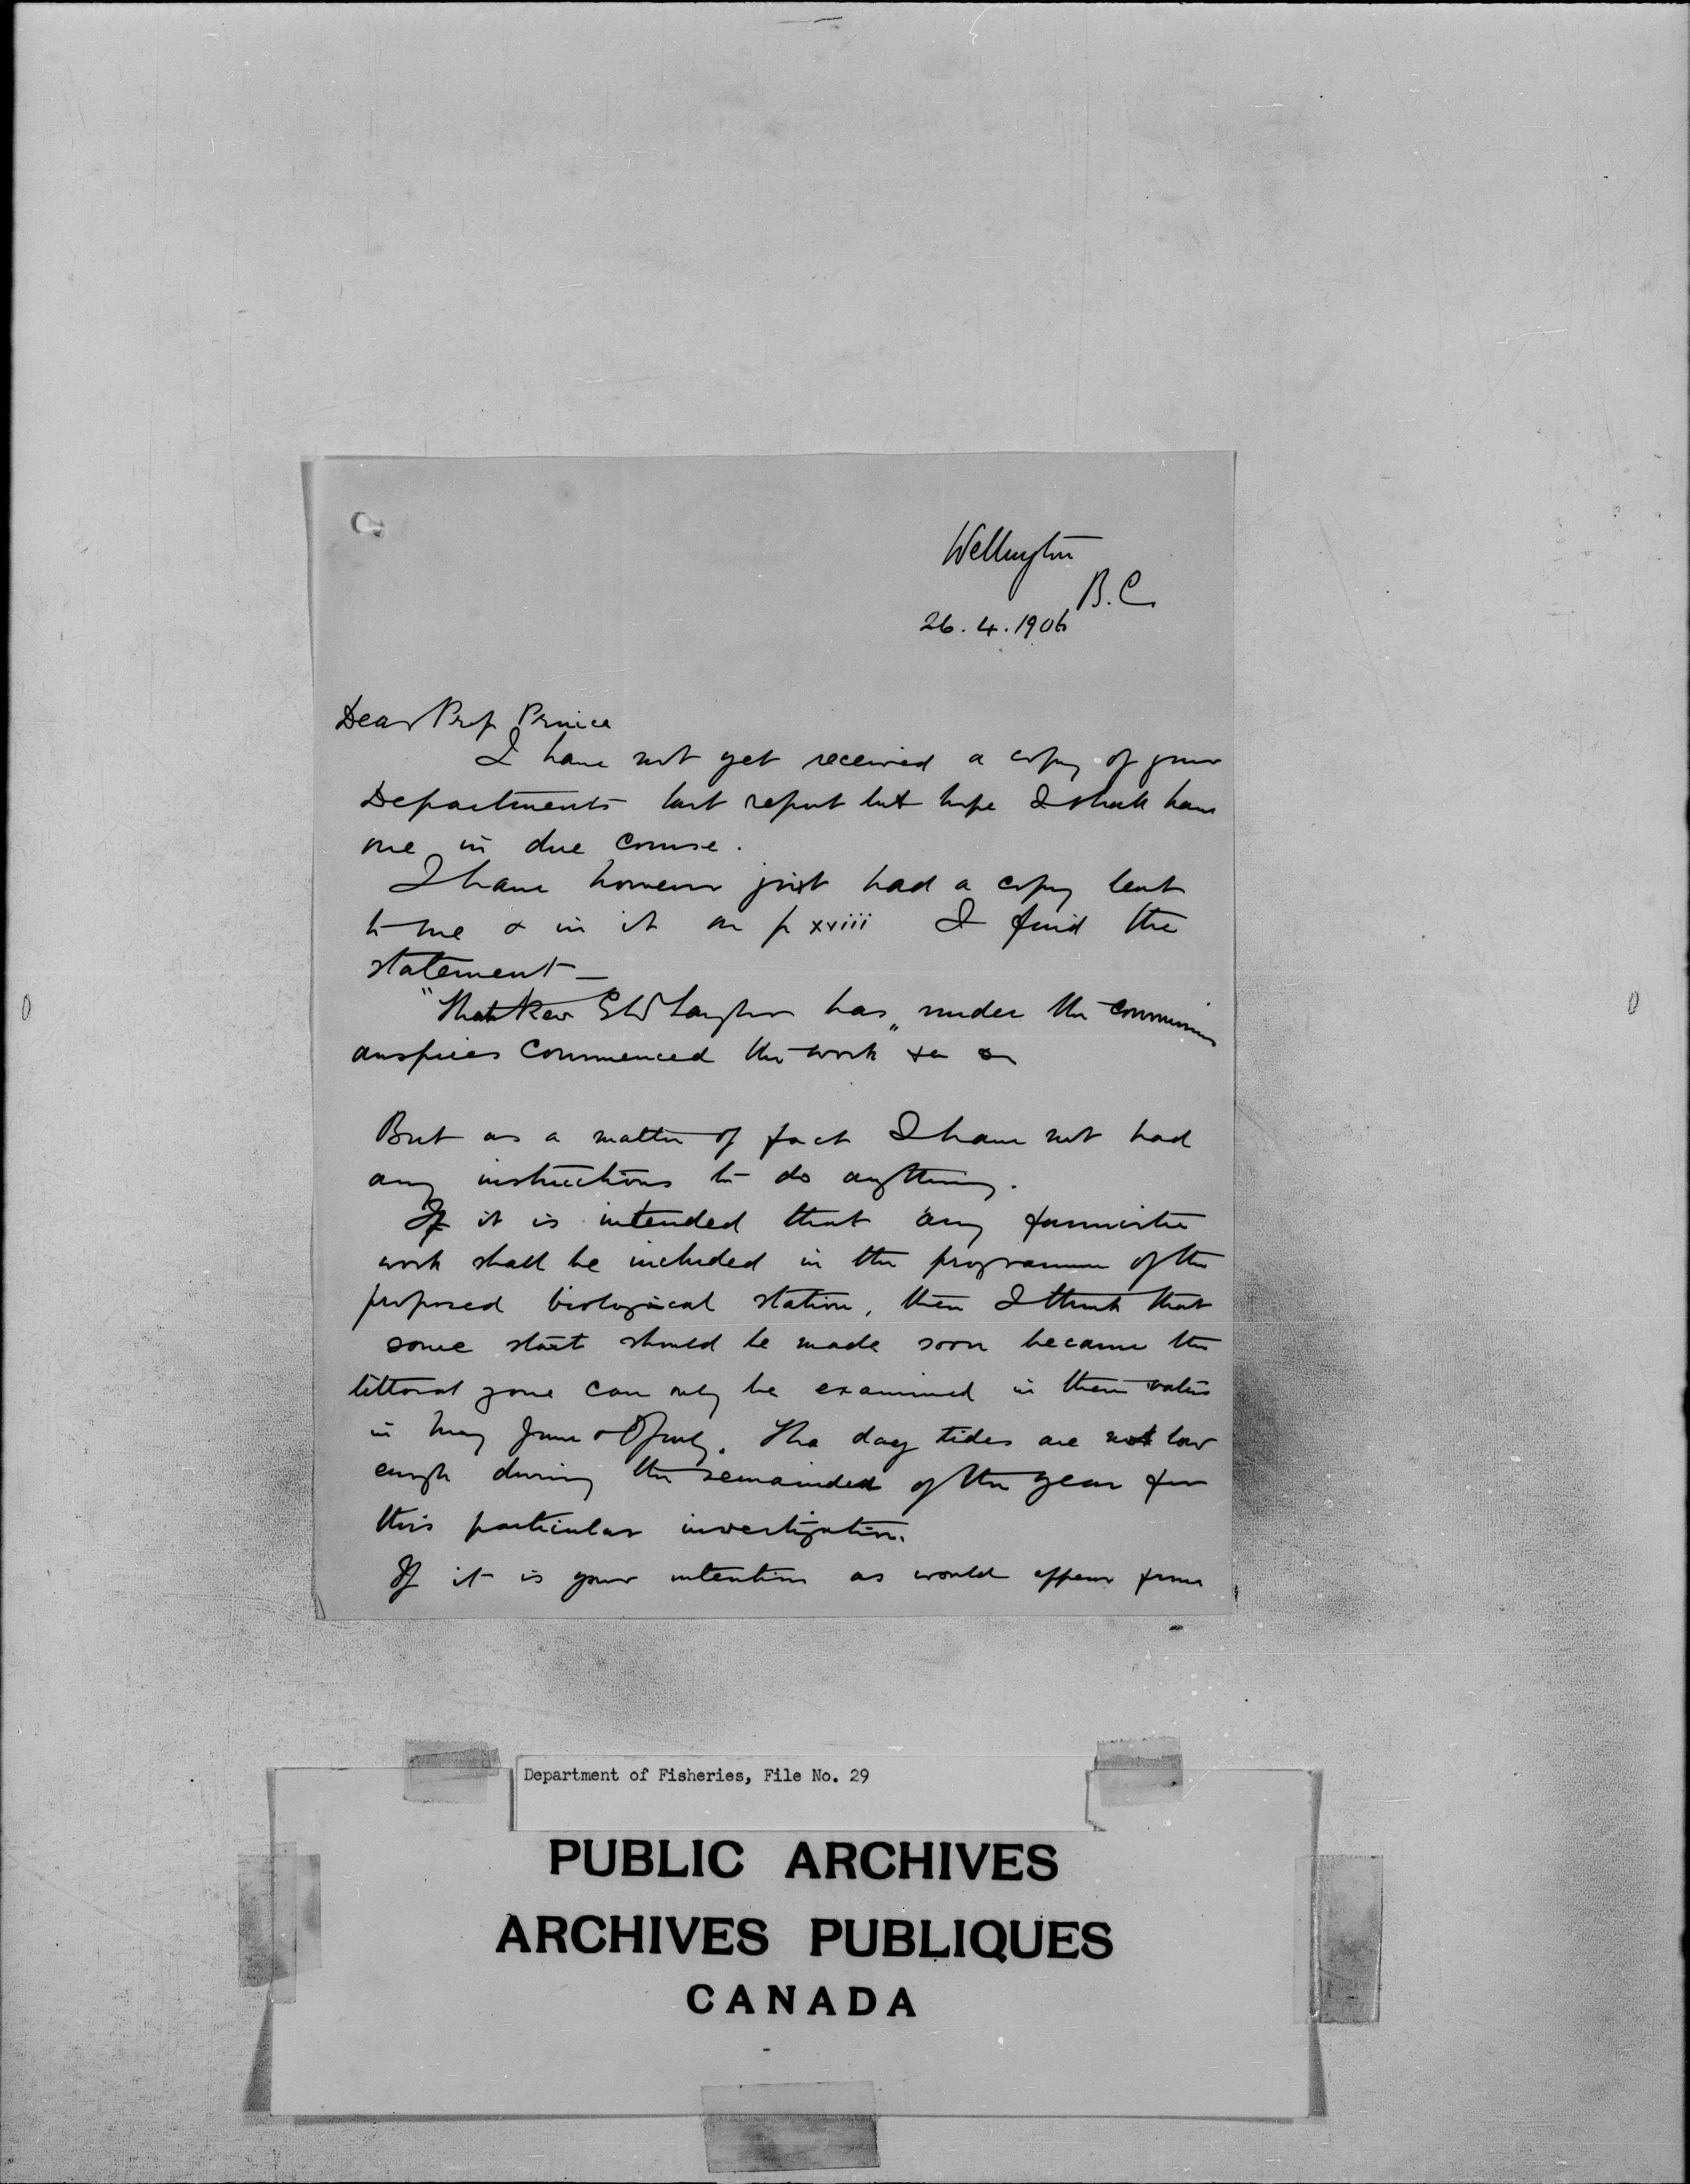 Wellington
B.C.
26.4.1906
Dear Prof Prince
I have not yet received a copy of your
Departments last report but hope I shall have
one in due course.
I have however just had a copy lent
to me & in it on p xviii I find the
statement —
"That Rev G W Taylor has "under the commissions
auspices commenced the work &c &c
But as a matter of fact I have not had
any instructions to do anything.
If it is intended that any faunistic
work shall be included in the programme of the
proposed biological station, then I think that
some start should be made soon because the
littoral zone can only be examined in these waters
in May June & July. The day tides are not low
enough during the remainder of the year for
this particular investigation.
If it is your intention as would appear from
Department of Fisheries, File No. 29
PUBLIC ARCHIVES
ARCHIVES PUBLIQUES
CANADA